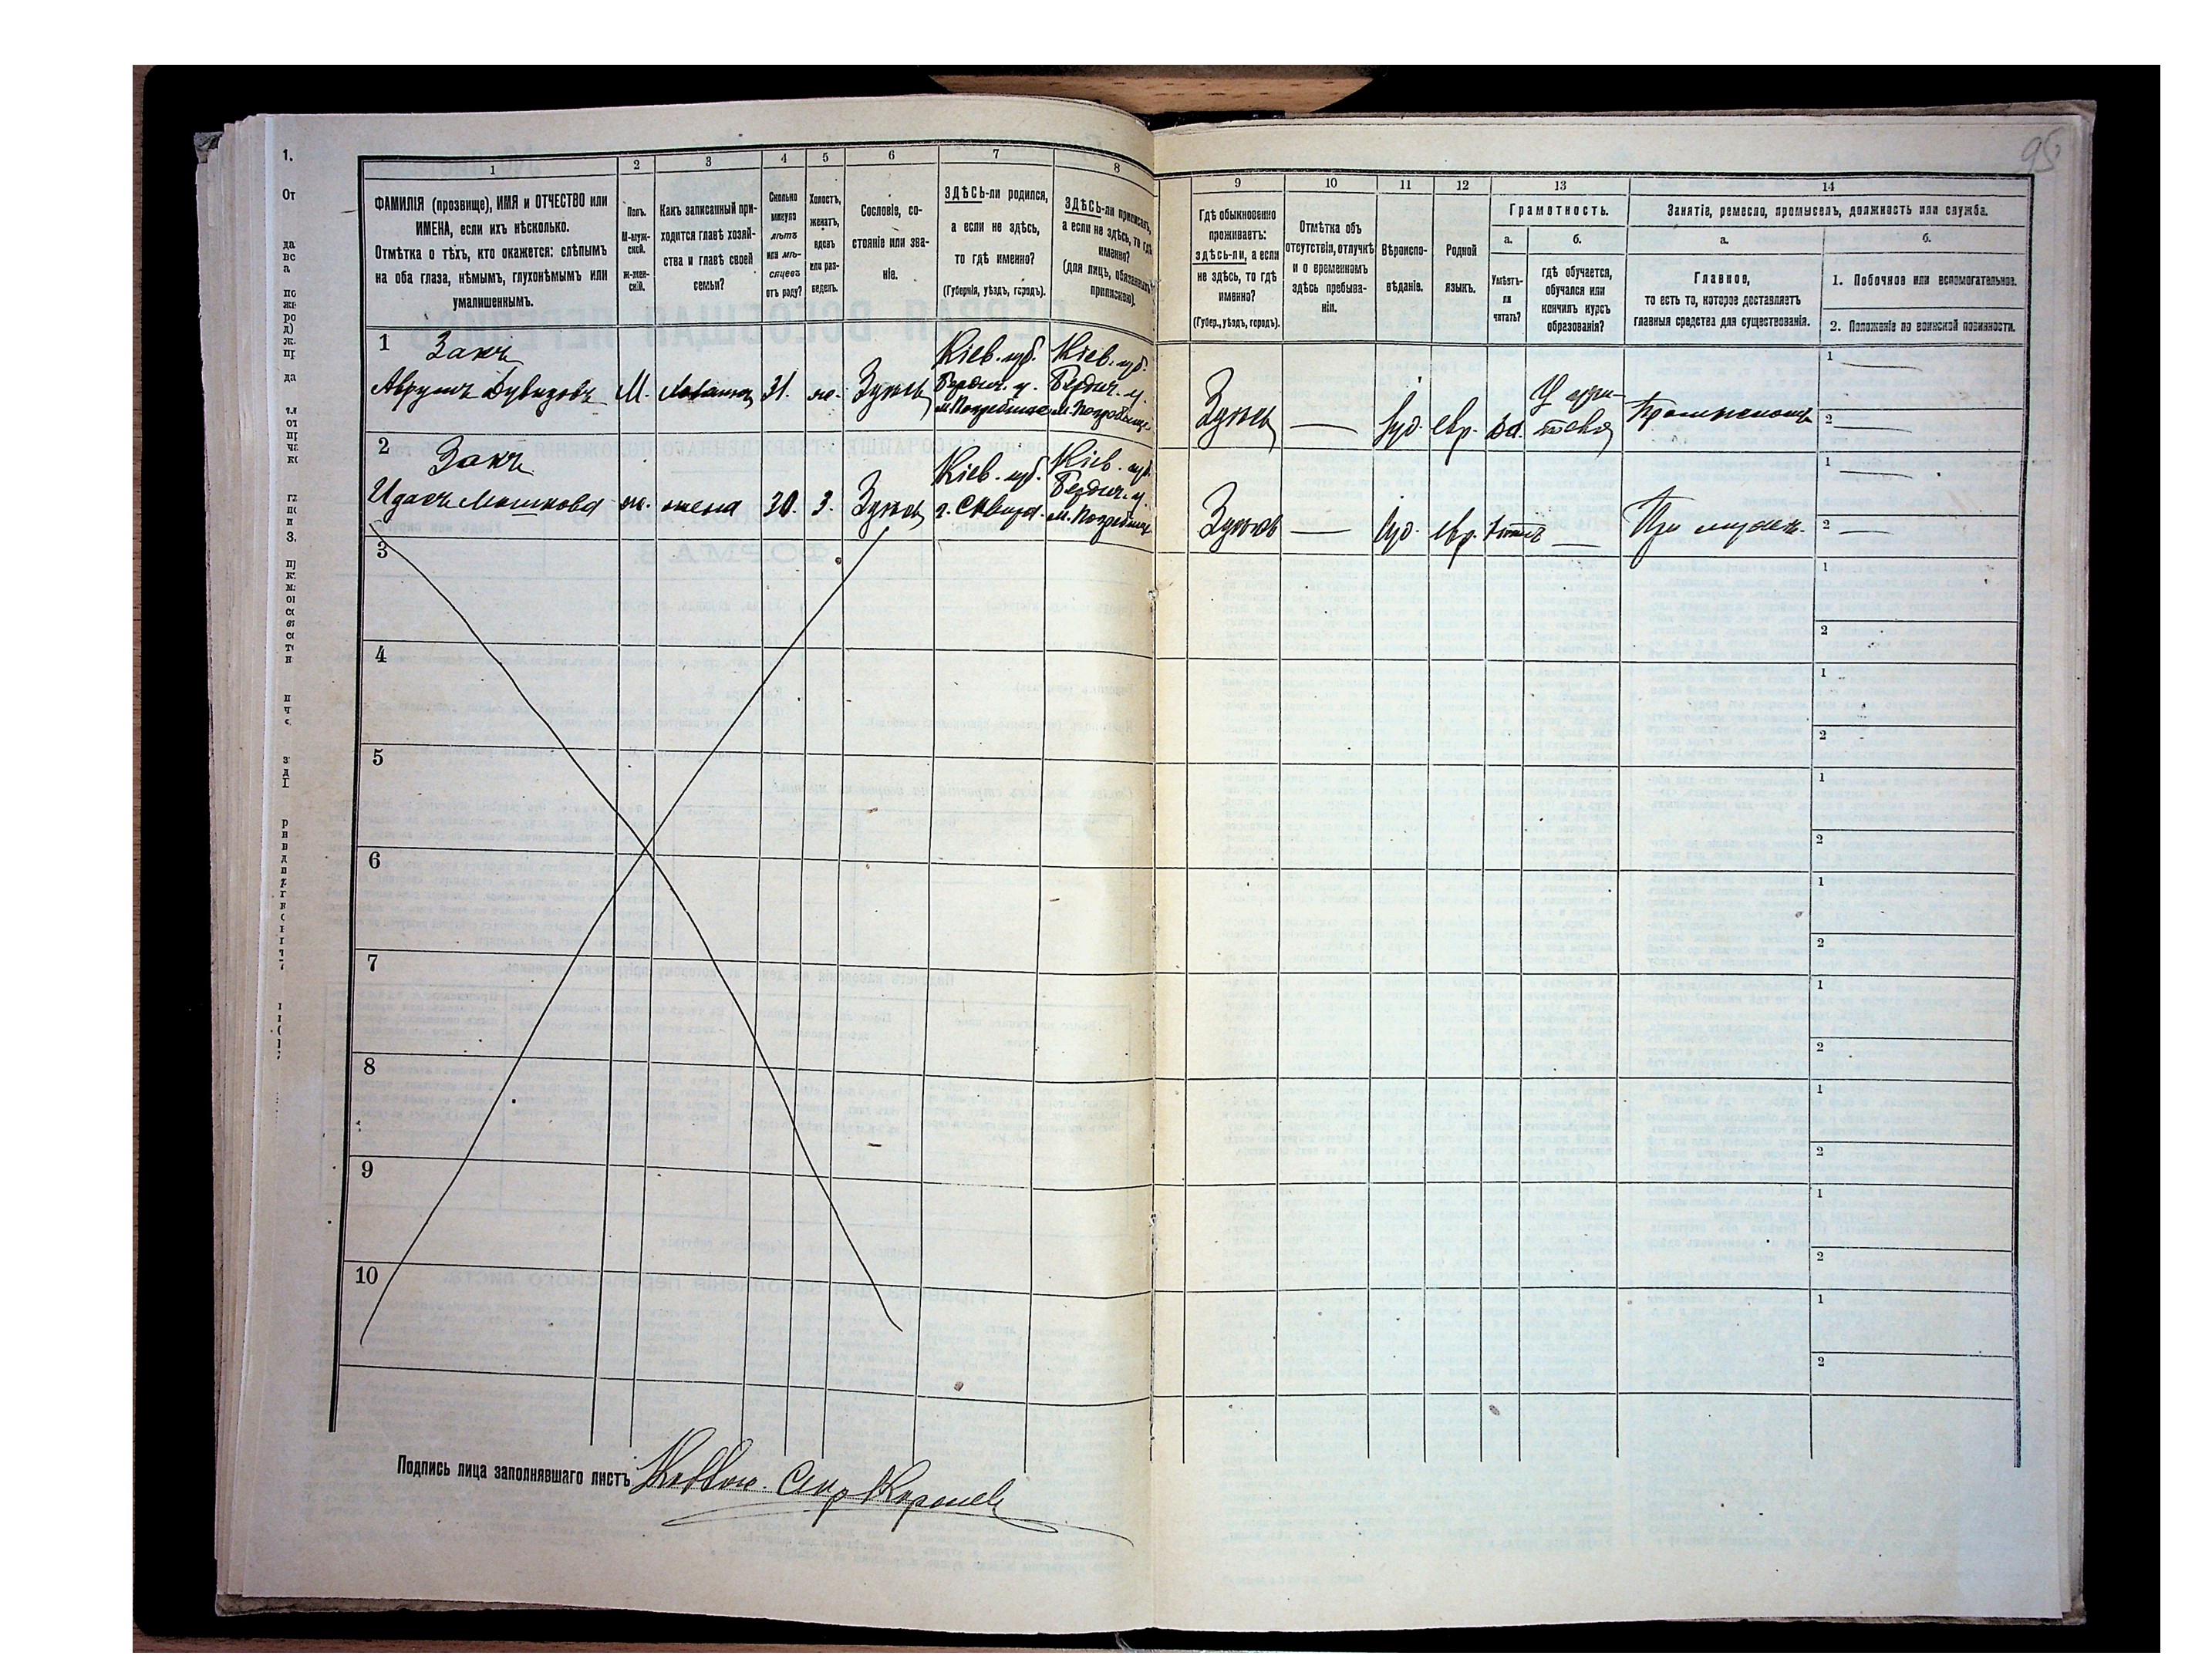 95
1 2 3 4 5 6 7 8 9 10 11 12 13 14
ФАМИЛІЯ (прозвище), ИМЯ и ОТЧЕСТВО или
ИМЕНА, если ихъ нѣсколько.
Отмѣтка о тѣхъ, кто окажется: слѣпымъ
на оба глаза, нѣмымъ, глухонѣмымъ или
умалишеннымъ.
Полъ.
М-муж-
ской.
ж-жен-
скій.
Какъ записанный при-
ходится главѣ хозяй-
ства и главѣ своей
семьи?
Сколько
минуло
лѣтъ
или мѣ-
сяцевъ
отъ роду?
Холостъ,
женатъ,
вдовъ
или раз-
веденъ.
Сословіе, со-
стояніе или зва-
ніе.
ЗДѢСЬ-ли родился,
а если не здѣсь,
то гдѣ именно?
(Губернія, уѣздъ, городъ).
ЗДѢСЬ-ли приписанъ,
а если не здѣсь, то гдѣ
именно?
(для лицъ, обязанныхъ
припискою).
Гдѣ обыкновенно
проживаетъ:
здѣсь-ли, а если
не здѣсь, то гдѣ
именно?
(Губер., уѣздъ, городъ).
Отмѣтка объ
отсутствіи, отлучкѣ
и о временномъ
здѣсь пребыва-
ніи.
Вѣроиспо-
вѣданіе.
Родной
языкъ.
Грамотность.
а.
Умѣетъ-
ли
читать?
б.
гдѣ обучается,
обучался или
кончилъ курсъ
образованія?
Занятіе, ремесло, промыселъ, должность или служба.
а.
Главное,
то есть то, которое доставляетъ
главныя средства для существованія.
б.
1. Побочное или вспомогательное.
2. Положеніе по воинской повинности.
1 Закъ
Аврумъ Дувидовъ М. хозяинъ 31. ж. Здѣсь
Кіев. губ.
Бердич. у.
м. Погребище
Кіев. губ.
Бердич. у.
м. Погребище
Здѣсь — іуд. евр. да.
1 —
2 —
2 Закъ
Идась Мошкова ж. жена 30. з. Здѣсь
Кіев. губ.
г. Сквира.
Кіев. губ.
Бердич. у.
м. Погребище
Здѣсь — іуд. евр. нѣтъ — При мужѣ.
1 —
2 —
3
1
2
4
1
2
5
1
2
6
1
2
7
1
2
8
1
2
9
1
2
10
1
2
Подпись лица заполнявшаго листъ